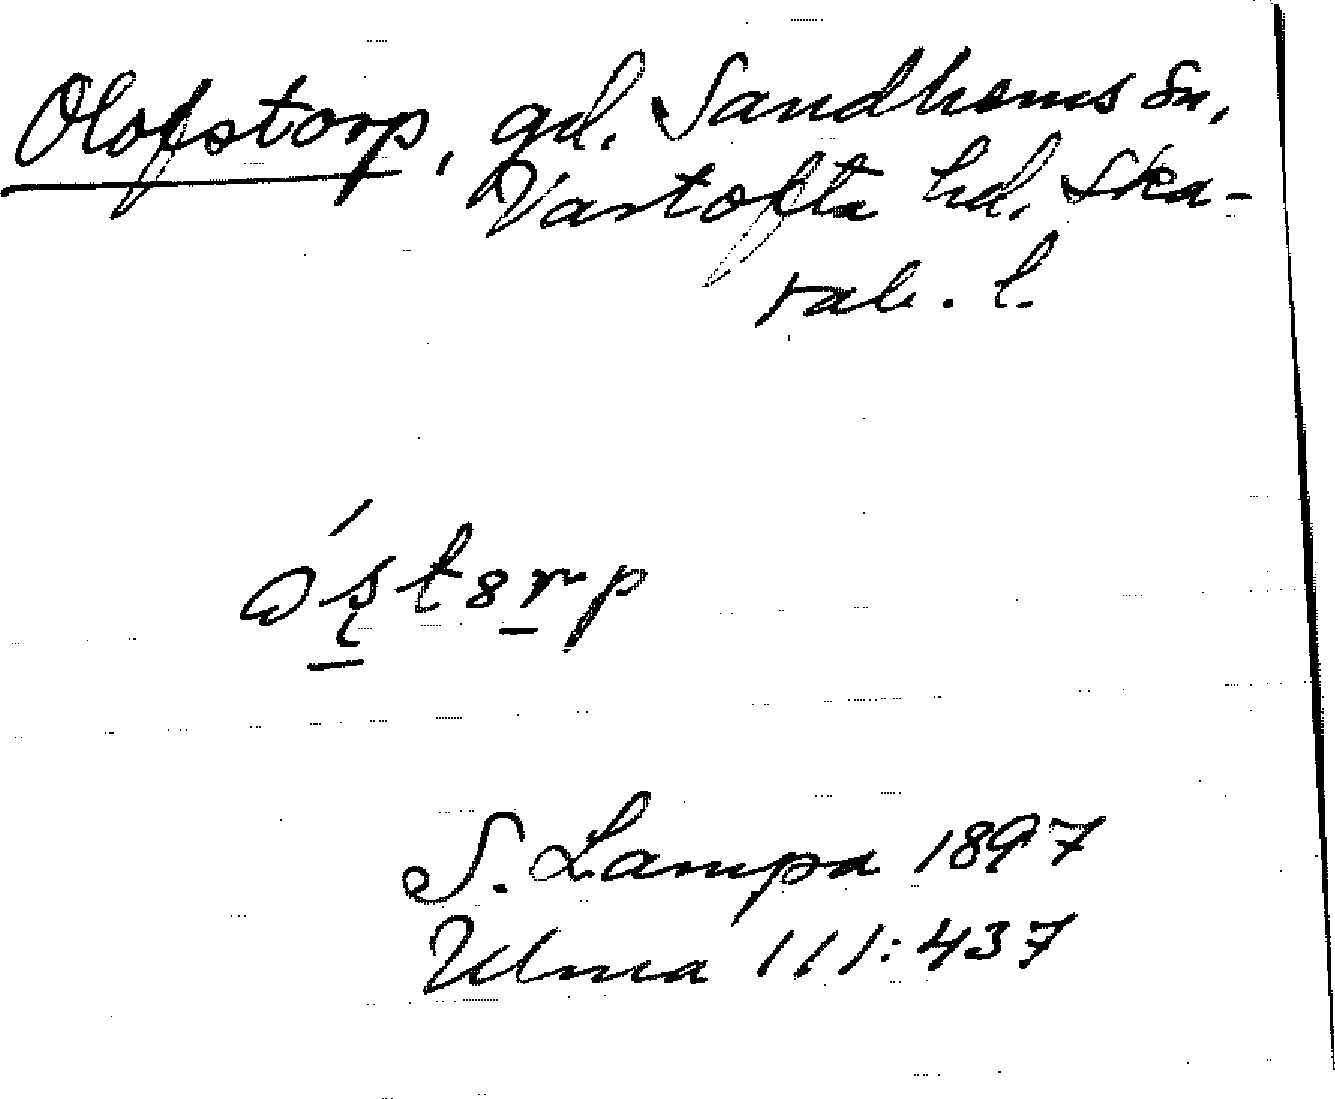 Olofstorp, gd. Sandhems sn,
Vartofta hd. Ska-
rab. l.
S. Lampa 1897
Ulma 111:437